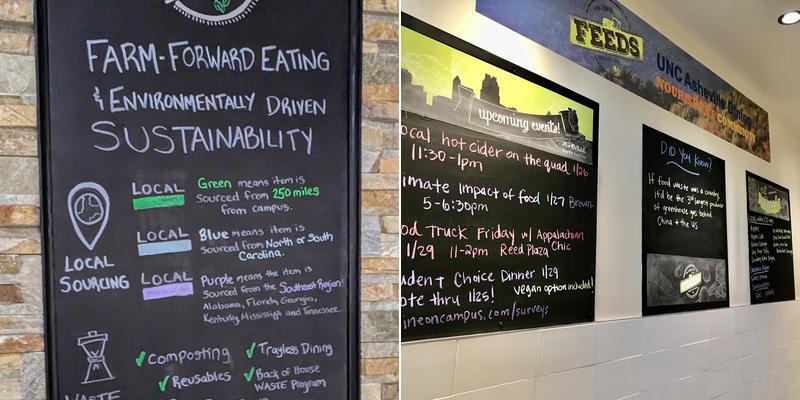 FARM-FORWARD EATING
& ENVIRONMENTALLY DRIVEN
SUSTAINABILITY
LOCAL SOURCING
LOCAL
Green means item is
sourced from 250 miles
from campus.
LOCAL
Blue means item is
sourced from North or South
Carolina.
LOCAL
Purple means the item is
sourced from the Southeast Region:
Alabama, Florida, Georgia,
Kentucky, Mississippi and Tennessee.
WASTE
✓ Composting
✓ Trayless Dining
✓ Reusables
✓ Back of House
WASTE Program
upcoming events!
ASHEVILLE
ocal hot cider on the quad 1/26
11:30-1pm
imate Impact of food 1/27 Brown
5-6:30pm
od Truck Friday w/ Appalachian
Chic
1/29 11-2pm Reed Plaza
udent Choice Dinner 1/29
ote thru 1/25! vegan option included!
ineoncampus.com/surveys
FEEDS
UNC Asheville Dining
DID YOU KNOW?
If food waste was a country,
it'd be the 3rd largest producer
of greenhouse gas behind
China + the US